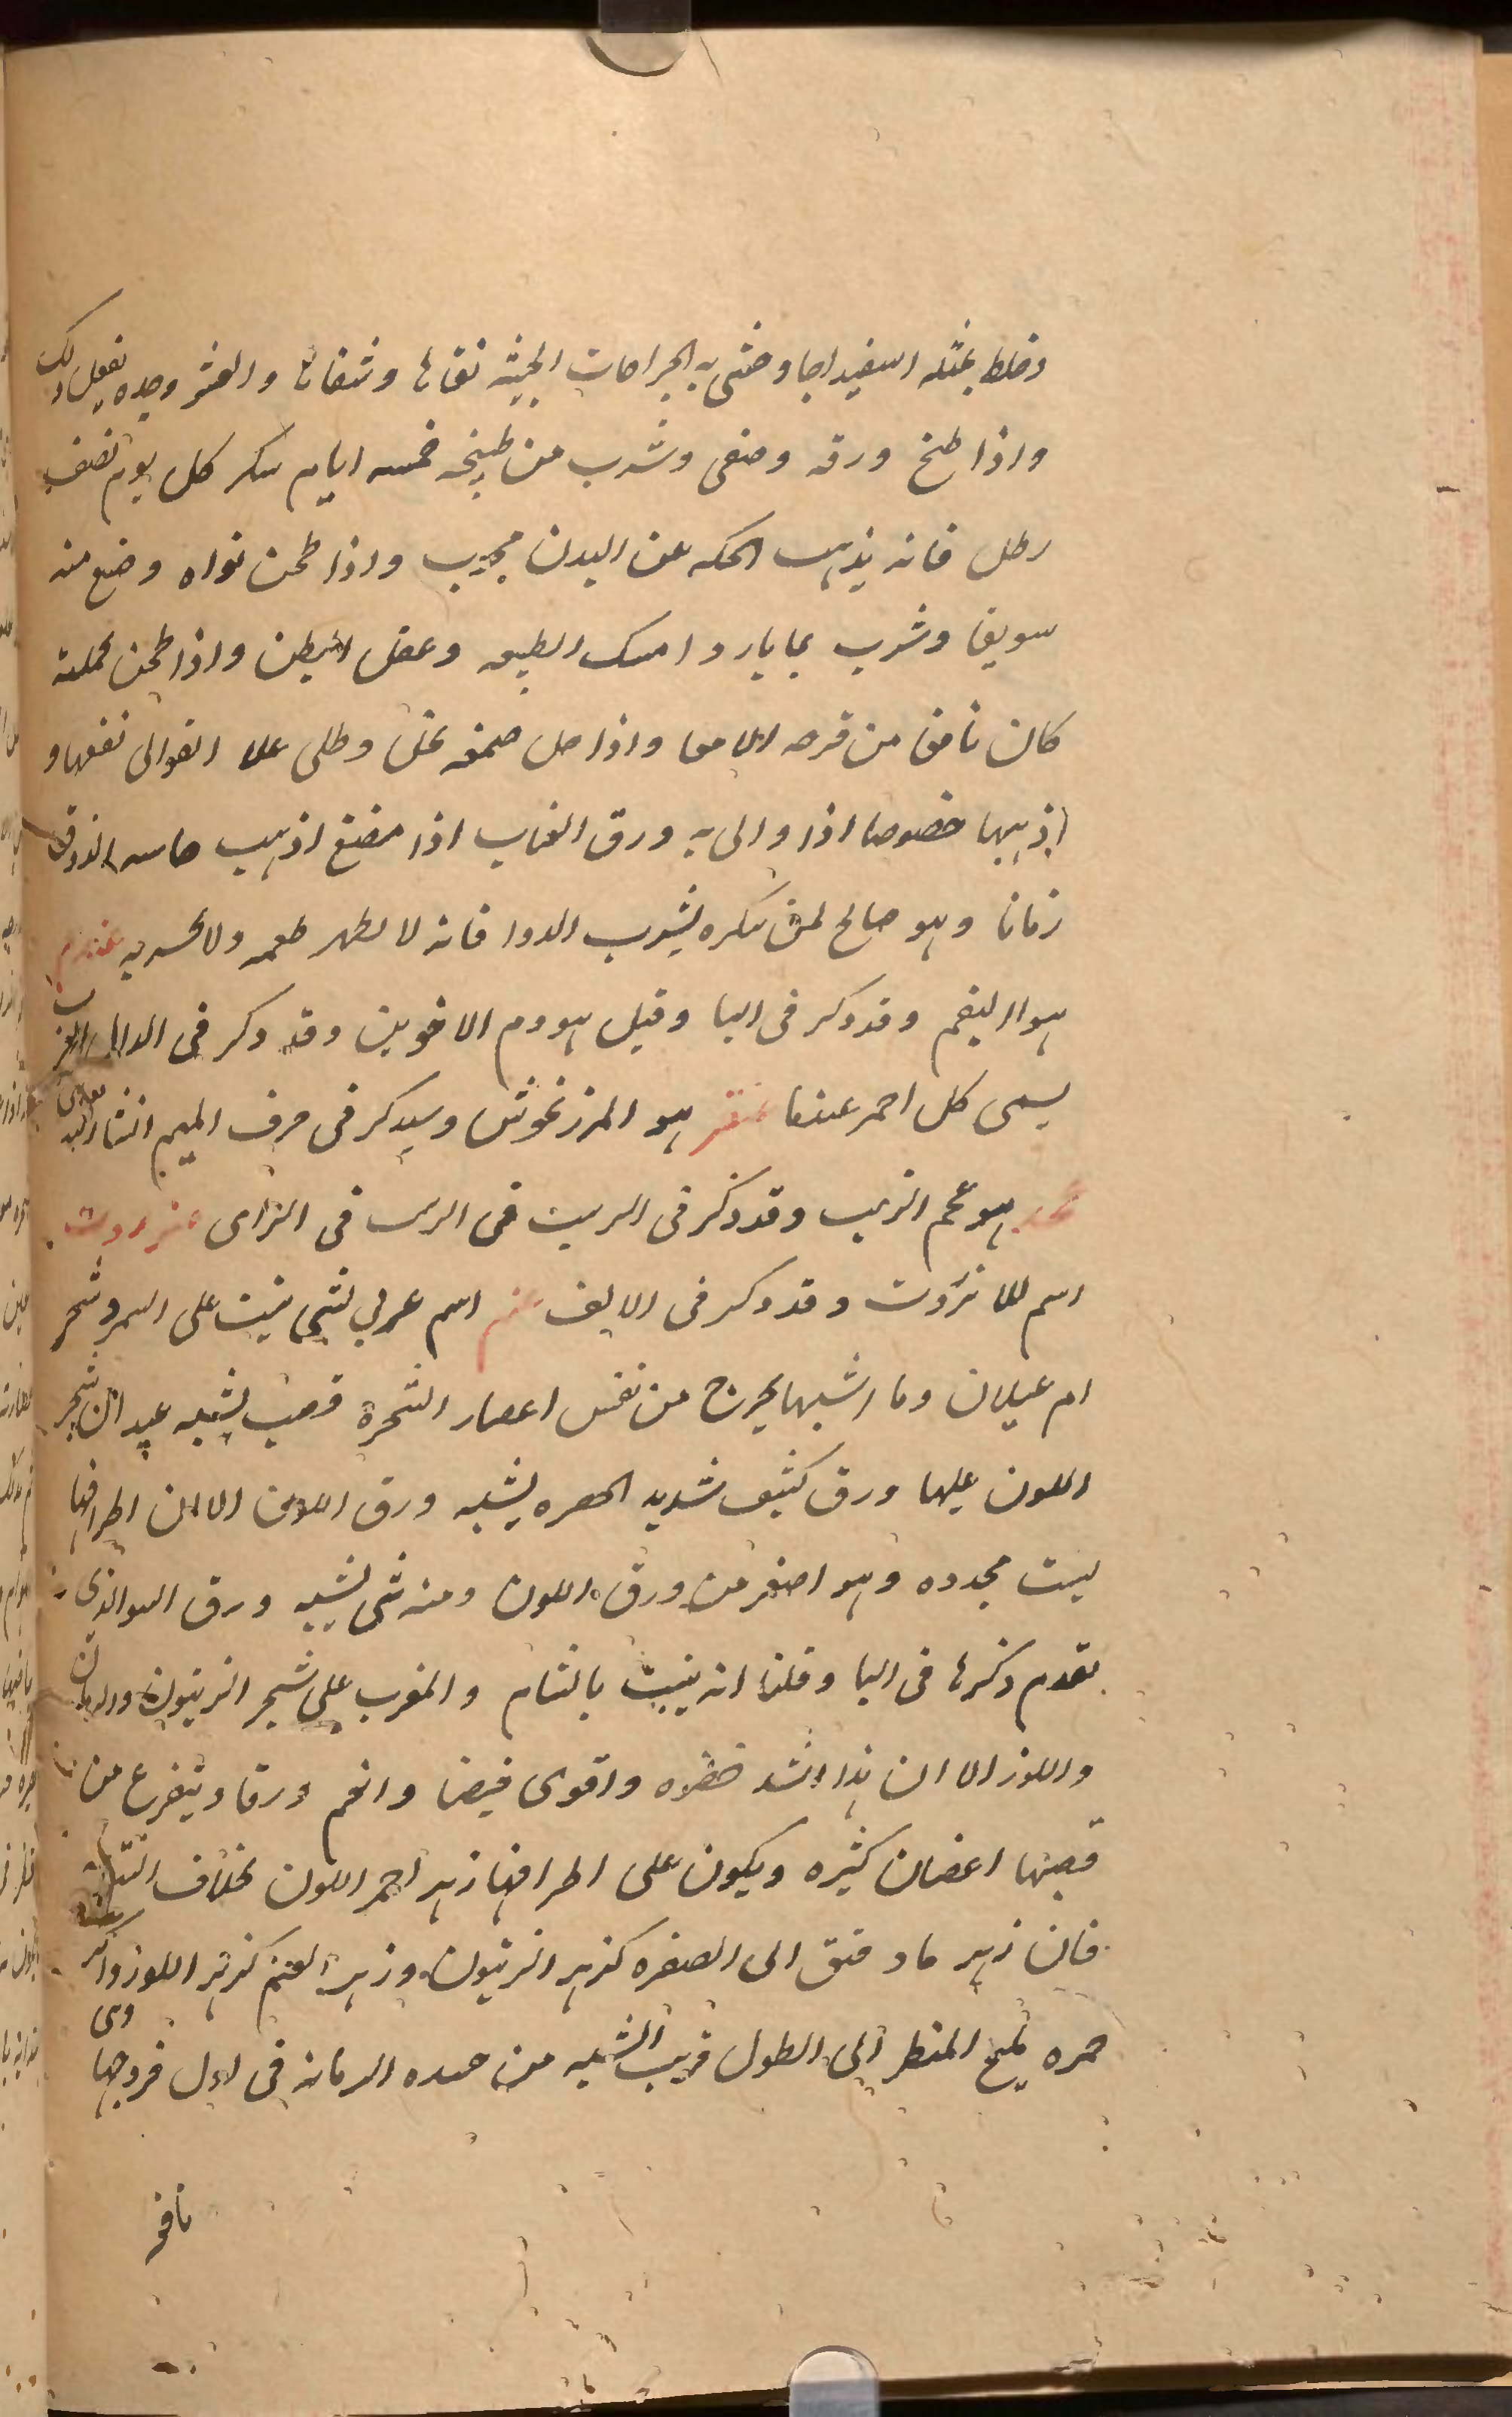 وخلط بمثله اسفيداجا وحشى به الجراحات الخبيثه نقاها وشفاها والقشر وحده يفعل ذلك
واذا طبخ ورقه وصفى وشرب من طبيخه خمسه ايام بسكر كل يوم نصف
رطل فانه يذهب الحكه عن البدن مجرب واذا طحن نواه وصنع منه
سويقا وشرب بما بارد امسك الطبيعه وعقل البطن واذا طحن بجملته
كان نافعا من قرحه الامعا واذا حل صمغه بخل وطلى على القوابى نفعها و
اذهبها خصوصا اذا والى به ورق العناب اذا مضغ اذهب حاسه الذوق
زمانا وهو صالح لمن يكره يشرب الدوا فانه لا يظهر طعمه ولا يحس به عندم
هو البقم وقد ذكر فى البا وقيل هو دم الاخوين وقد ذكر فى الدال
يسمى كل احمر عندما عنقز هو المرزنجوش وسيذكر فى حرف الميم انشا الله تعالى
هو عجم الزبيب وقد ذكر فى الزبيب فى الزاى عنزروت
اسم للانزروت وقد ذكر فى الالف عنم اسم عربي لشى ينبت على السمر وشجر
ام غيلان وما اشبهها يخرج من نفس اعصار الشجرة قصب يشبه عيدان شجر
اللون عليها ورق كثيف شديد الخضره يشبه ورق اللوز الا ان اطرافها
ليست محدده وهو اصغر من ورق اللون ومنه شى يشبه ورق الذى
تقدم ذكرها فى البا وقلنا انه ينبت بالشام والمغرب على شجر الزيتون والرمان
واللوز الا ان هذا اشد خضره واقوى قبضا وانعم ورقا ويتفرع من
قصبها اغصان كثيره ويكون على اطرافها زهر احمر اللون بخلاف
فان زهر هادقق الى الصفره كزهر الزيتون وزهر العنم كزهر اللوز واكثر
حمره مليح المنظر الى الطول قريب الشبه من عقده الرمانه فى اول خروجها وى
نافع